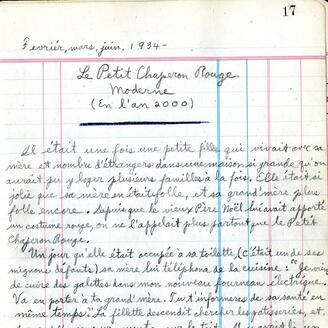 17
Fevriér, mars, juin, 1934-
Le Petit Chaperon Rouge
Moderne
(En l'an 2000)
Il était une fois une petite fille qui vivait avec sa
mère et nombre d'étrangers dans une maison si grande qu'on
aurait pu y loger plusieurs familles à la fois. Elle était si
jolie que sa mère en était folle, et sa grand'mère plus
folle encore. Depuis que le vieux Père Noël lui avait apporté
un costume rouge, on ne l'appelait plus partout que le Petit
Chaperon Rouge.
Un jour qu'elle était occupée à sa toilette, (c'était un de ses
mignons défauts) sa mère lui téléphona de la cuisine: "Je viens
de cuire des galettes dans mon nouveau fourneau électrique.
Va en porter à ta grand'mère. Tu t'informeras de sa santé en
même temps". La fillette descendit chercher les patisseries, et